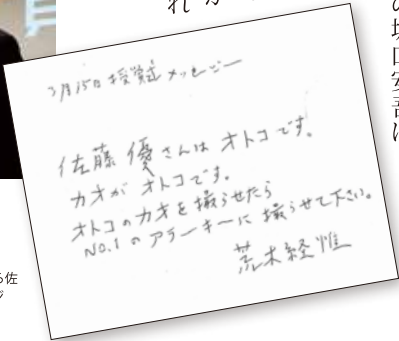 れか
の坂口安吾は
3月15日授賞メッセージ
佐藤優さんは オトコです。
カオが オトコです。
オトコのカオを撮らせたら
NO.1のアラーキーに撮らせて下さい。
荒木経惟
る佐
ジ